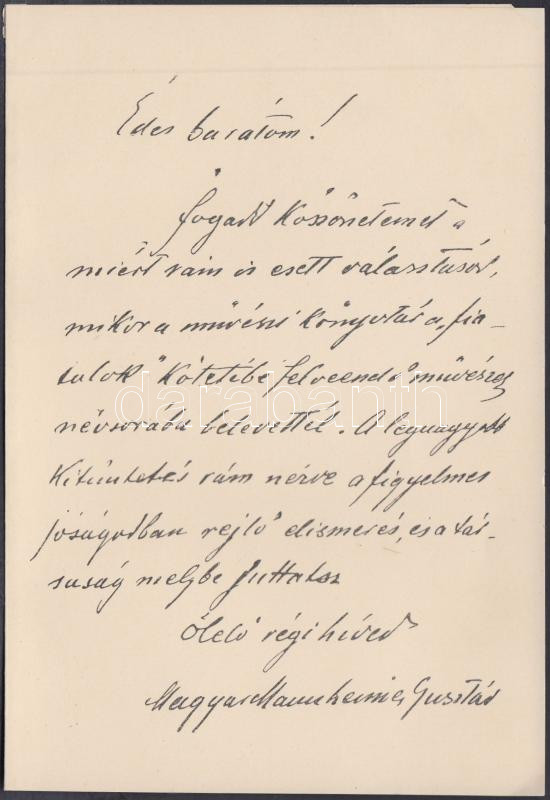 Édes barátom!
fogadd köszönetemet a
miért rám is esett választásod,
mikor a művészi könyvtár a „fia-
talok" kötetébe felveendő művészek
névsorába betevettél. A legnagyobb
kitüntetés rám nézve a figyelmes
jóságodban rejlő elismerés, és a tár-
saság melybe juttatsz
Ölelő régi híved
Magyar Mannheimer Gusztáv
darabanth